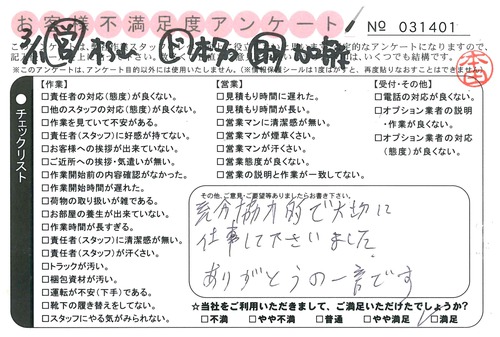 お客様不満足度アンケート
No 031401
チェックリスト
【作業】
□責任者の対応(態度)が良くない。
□他のスタッフの対応(態度)が良くない。
□作業を見ていて不安がある。
□責任者(スタッフ)に好感が持てない。
□お客様への挨拶が出来ていない。
□ご近所への挨拶・気遣いが無い。
□作業開始前の内容確認がなかった。
□作業開始時間が遅れた。
□荷物の取り扱いが雑である。
□お部屋の養生が出来ていない。
□作業時間が長すぎる。
□責任者(スタッフ)に清潔感が無い。
□責任者(スタッフ)が汗くさい。
□トラックが汚い。
□梱包資材が汚い。
□運転が不安(下手)である。
□靴下の履き替えをしてない。
□スタッフにやる気がみられない。
【営業】
□見積もり時間に遅れた。
□見積もり時間が長い。
□営業マンに清潔感が無い。
□営業マンが煙草くさい。
□営業マンが汗くさい。
□営業態度が良くない。
□営業の説明と作業が一致してない。
【受付・その他】
□電話の対応が良くない。
□オプション業者の説明
・作業が良くない。
□オプション業者の対応
(態度)が良くない。
その他、ご意見・ご要望等ありましたらお書き下さい。
充分協力的で大切に
仕事して下さいました
ありがとうの一言です
☆当社をご利用いただきまして、ご満足いただけたでしょうか?
□不満 □やや不満 □普通 □やや満足 □満足